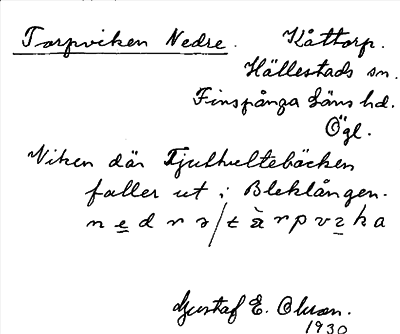 Torpviken Nedre. Kåttorp.
Hällestads sn.
Finspånga läns hd.
Ögl.
Viken där Tjuthultebäcken
faller ut i Bleklången.
n e d r ə / t à r p v ɪ k a
Gustaf E. Olsson.
1930